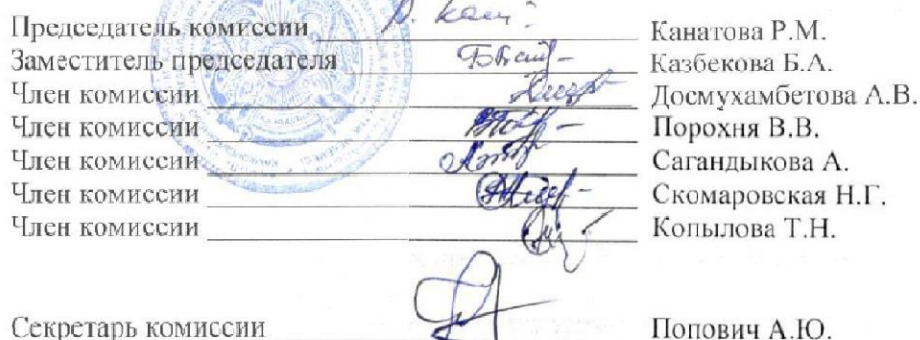 Председатель комиссии Канатова Р.М.
Заместитель председателя Казбекова Б.А.
Член комиссии Досмухамбетова А.В.
Член комиссии Порохня В.В.
Член комиссии Сагандыкова А.
Член комиссии Скомаровская Н.Г.
Член комиссии Копылова Т.Н.
Секретарь комиссии Попович А.Ю.